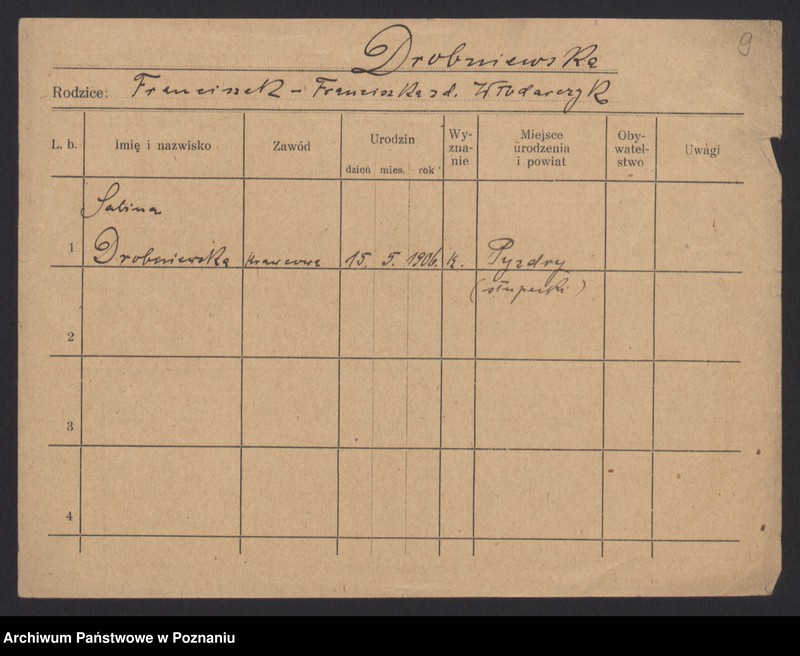 9
Drobniewska
Rodzice: Franciszek – Franciszka zd. Włodarczyk
L. b. Imię i nazwisko Zawód Urodzin dzień mies. rok Wy-zna-nie Miejsce urodzenia i powiat Oby-watel-stwo Uwagi
Sabina
1 Drobniewska krawcowa 15. 5. 1906. k. Pyzdry
(słupecki)
2
3
4
Archiwum Państwowe w Poznaniu